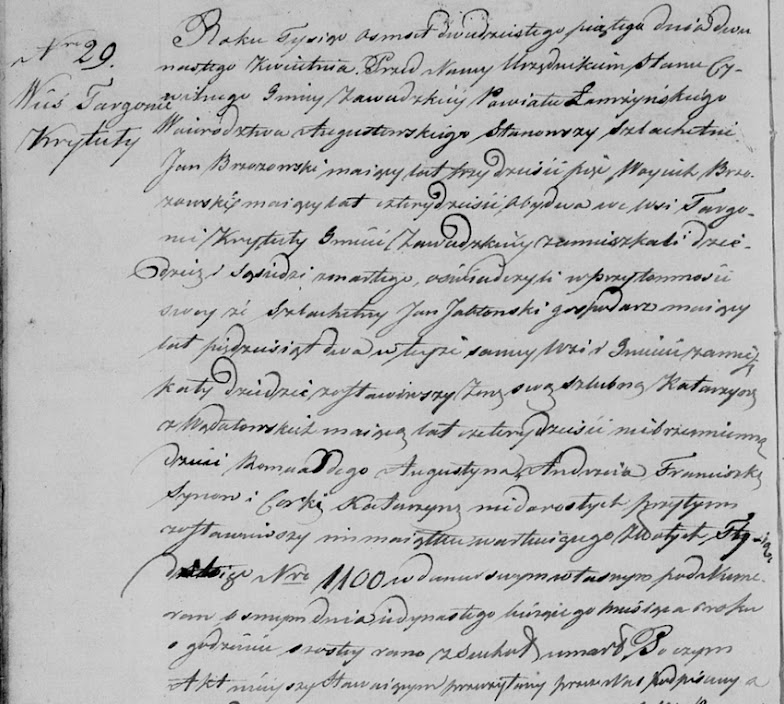 Nro 29.
Wieś Targonie
Krytuły
Roku Tysiąc Osmset dwudziestego piątego dnia dwu
nastego Kwietnia. Przed Namy Urzędnikiem Stanu Cy-
wilnego Gminy Zawadzkiey Powiatu Łomżyńskiego
Woiewodztwa Augustowskiego Stanowszy Szlachetni
Jan Brzozowski maiący lat trzydzieści pięć, Woyciech Brzo-
zowski maiący lat czterydzieści, obydwa we wsi Targo-
nie Krytuły Gminie Zawadzkiey zamieszkali dzie-
dzice i sąsiedzi zmarłego, oświadczyli w przytomności
swey że Szlachetny Jan Jabłonski gospodarz maiący
lat pięcdziesiąt dwa w teyże samey Wsi i Gminie zamiesz
kały dziedzic zostawiwszy Żonę swą szlubną Katarzynę
z maiącą lat czterydzieści niebrzemienną
dzieci Romualdego Augustyna, Andrzeia Franciszka
Synow i Corkę Katarzynę niedorosłych przytym
zostawiwszy maiątku wartuiącego Złotych Tysiąc
Nro 1100 w domu swym własnym pod Nume-
rem osmym dnia iedynastego bieżącego miesiąca i roku
o godzinie szostey rano z Suchot umarł. Poczym
Akt ninieyszy Stawaiącym przeczytany przez Nas podpisany a